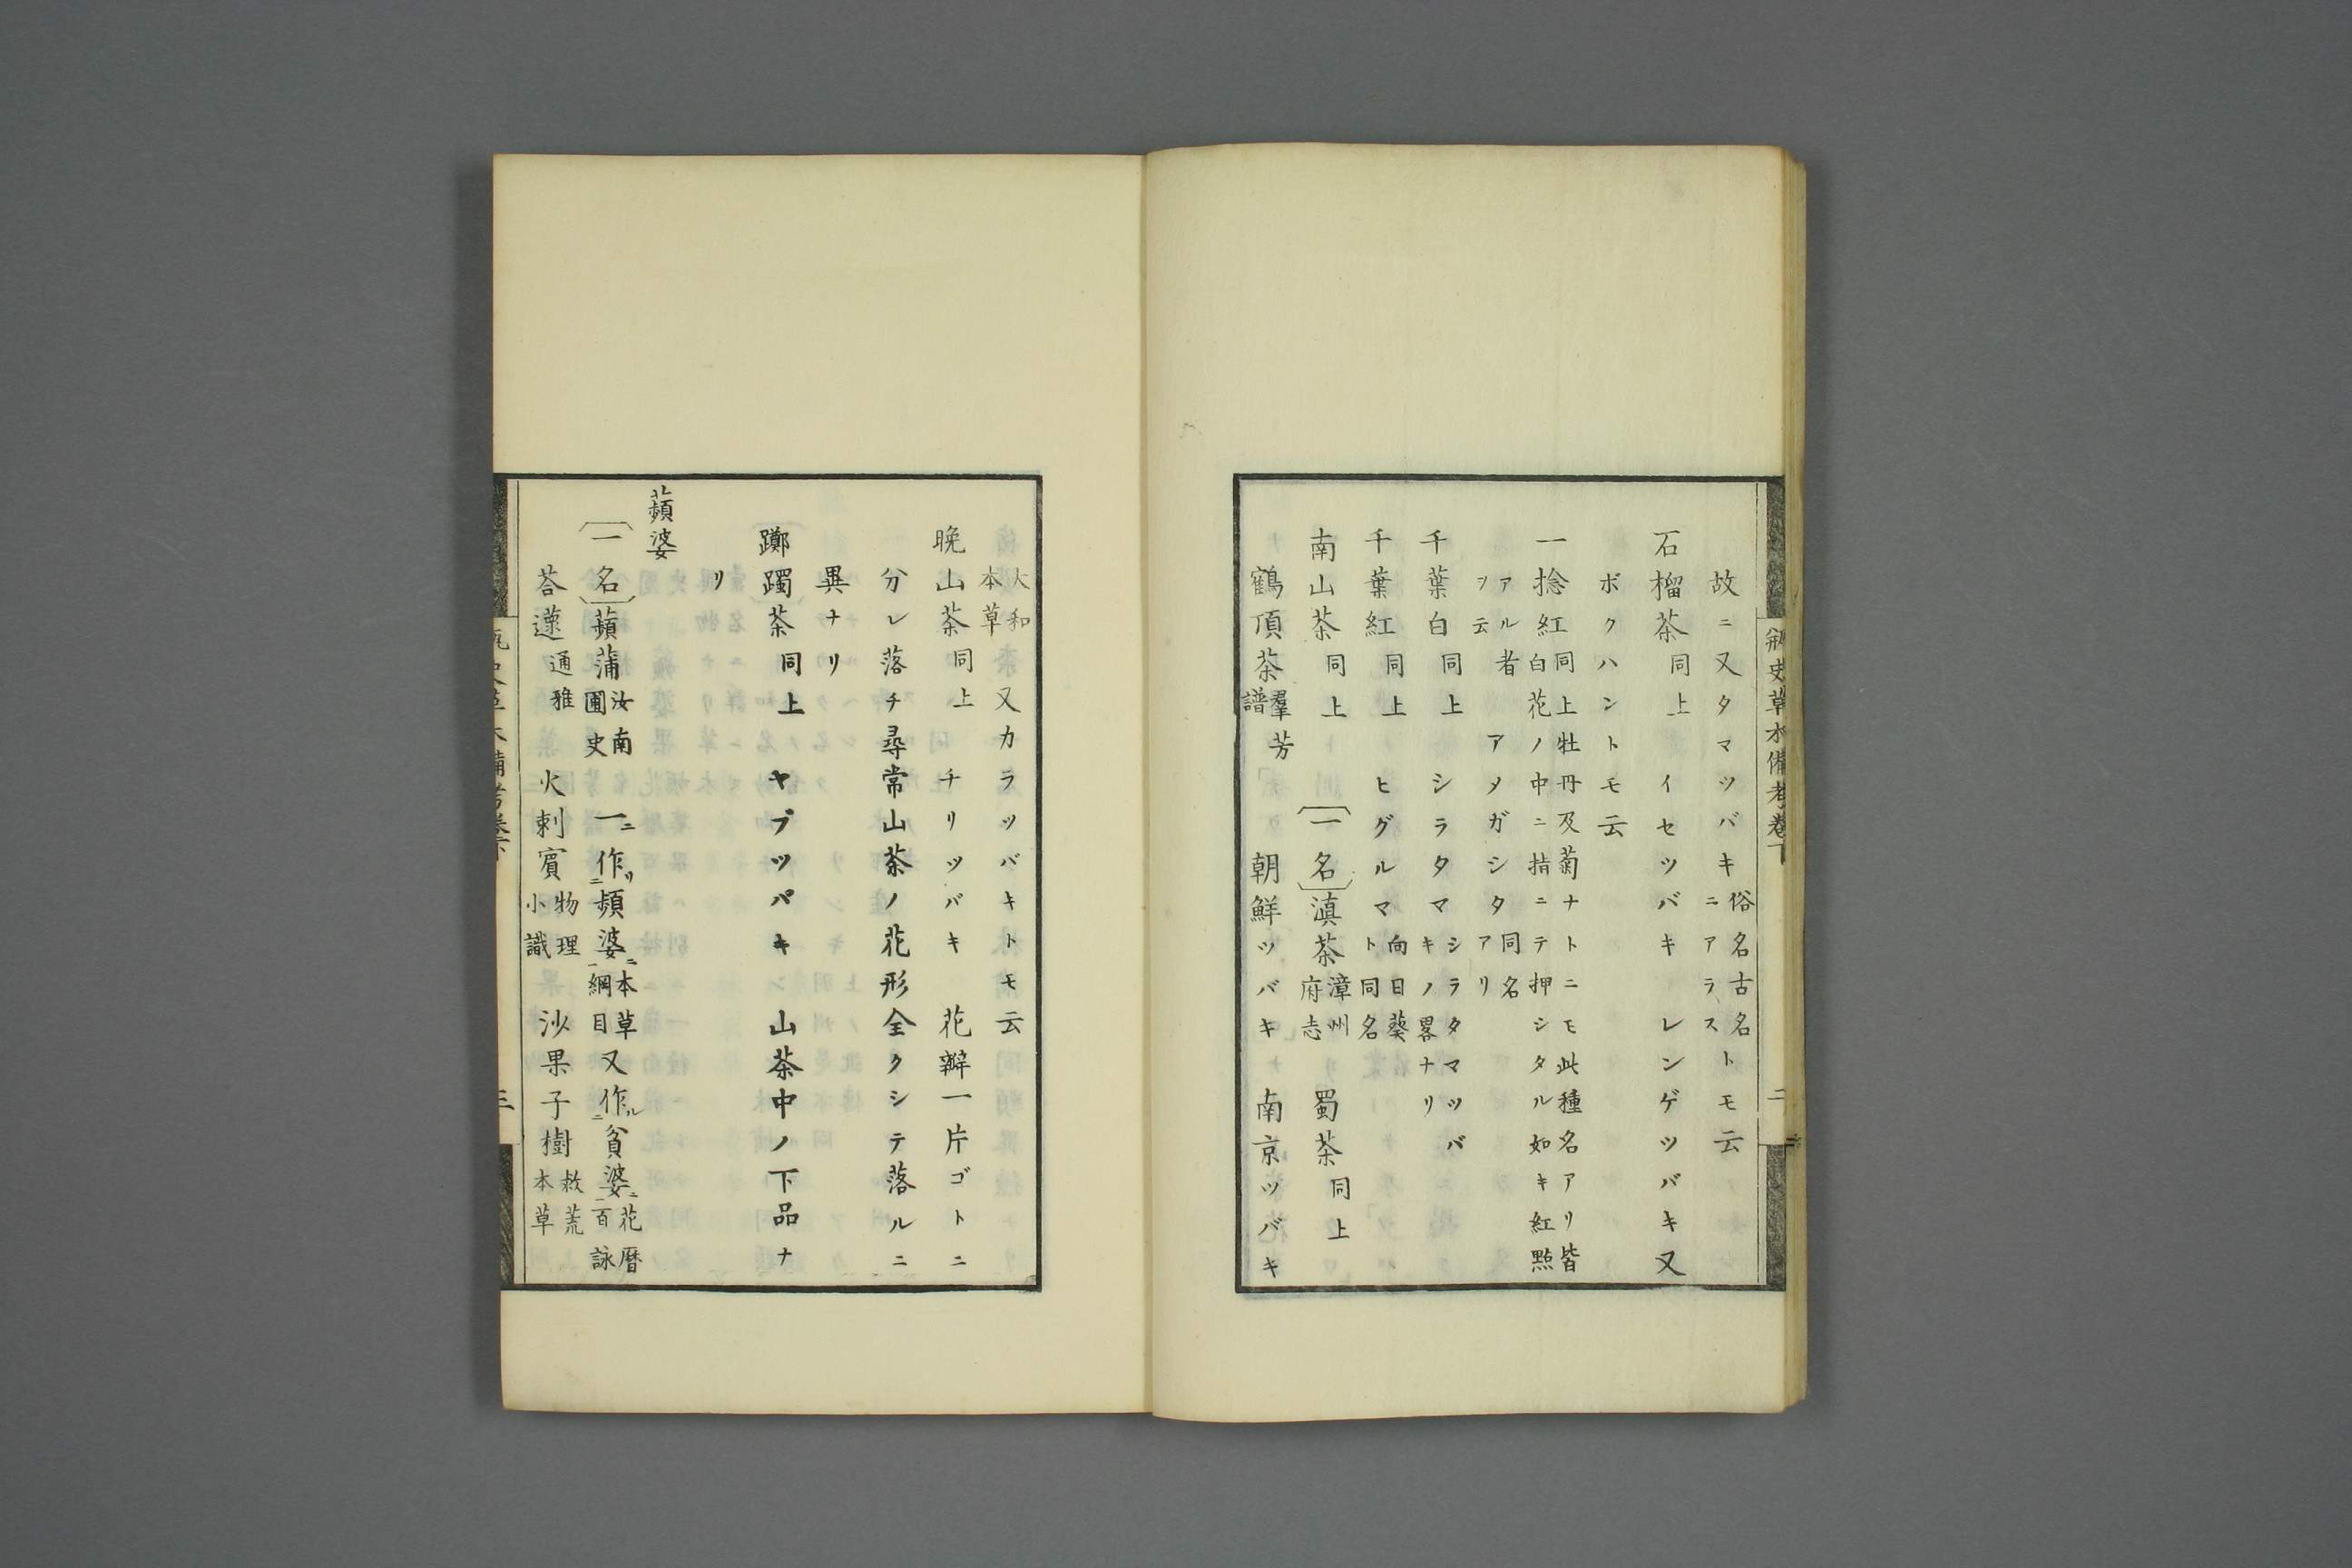 缾史草木備考卷下
二
故ニ又タマツバキ俗名古名ニアラストモ云
石榴茶同上 イセツバキ レンゲツバキ又
ボクハントモ云
一捻紅同上牡丹及菊ナトニモ此種名アリ皆白花ノ中ニ指ニテ押シタル如キ紅㸃
アル者ヲ云 アメガシタ同名アリ
千葉白同上 シラタマシラタマツバキノ畧ナリ
千葉紅同上 ヒグルマ向日葵ト同名
南山茶同上 〔一名〕滇茶漳州府志 蜀茶同上
鶴頂茶羣芳譜 朝鮮ツバキ 南京ツバキ
大和本草又カラツバキトモ云
晩山茶同上 チリツバキ 花瓣一片ゴトニ
分レ落チ尋常山茶ノ花形全クシテ落ルニ
異ナリ
躑躅茶同上 ヤブツバキ 山茶中ノ下品ナ
リ
蘋婆
〔一名〕蘋蒲汝南圃史 一ニ作リ頻婆ニ本草綱目又作ル貧婆ニ花暦百詠
荅薘通雅 火刺賓物理小識 沙果子樹救荒本草
三